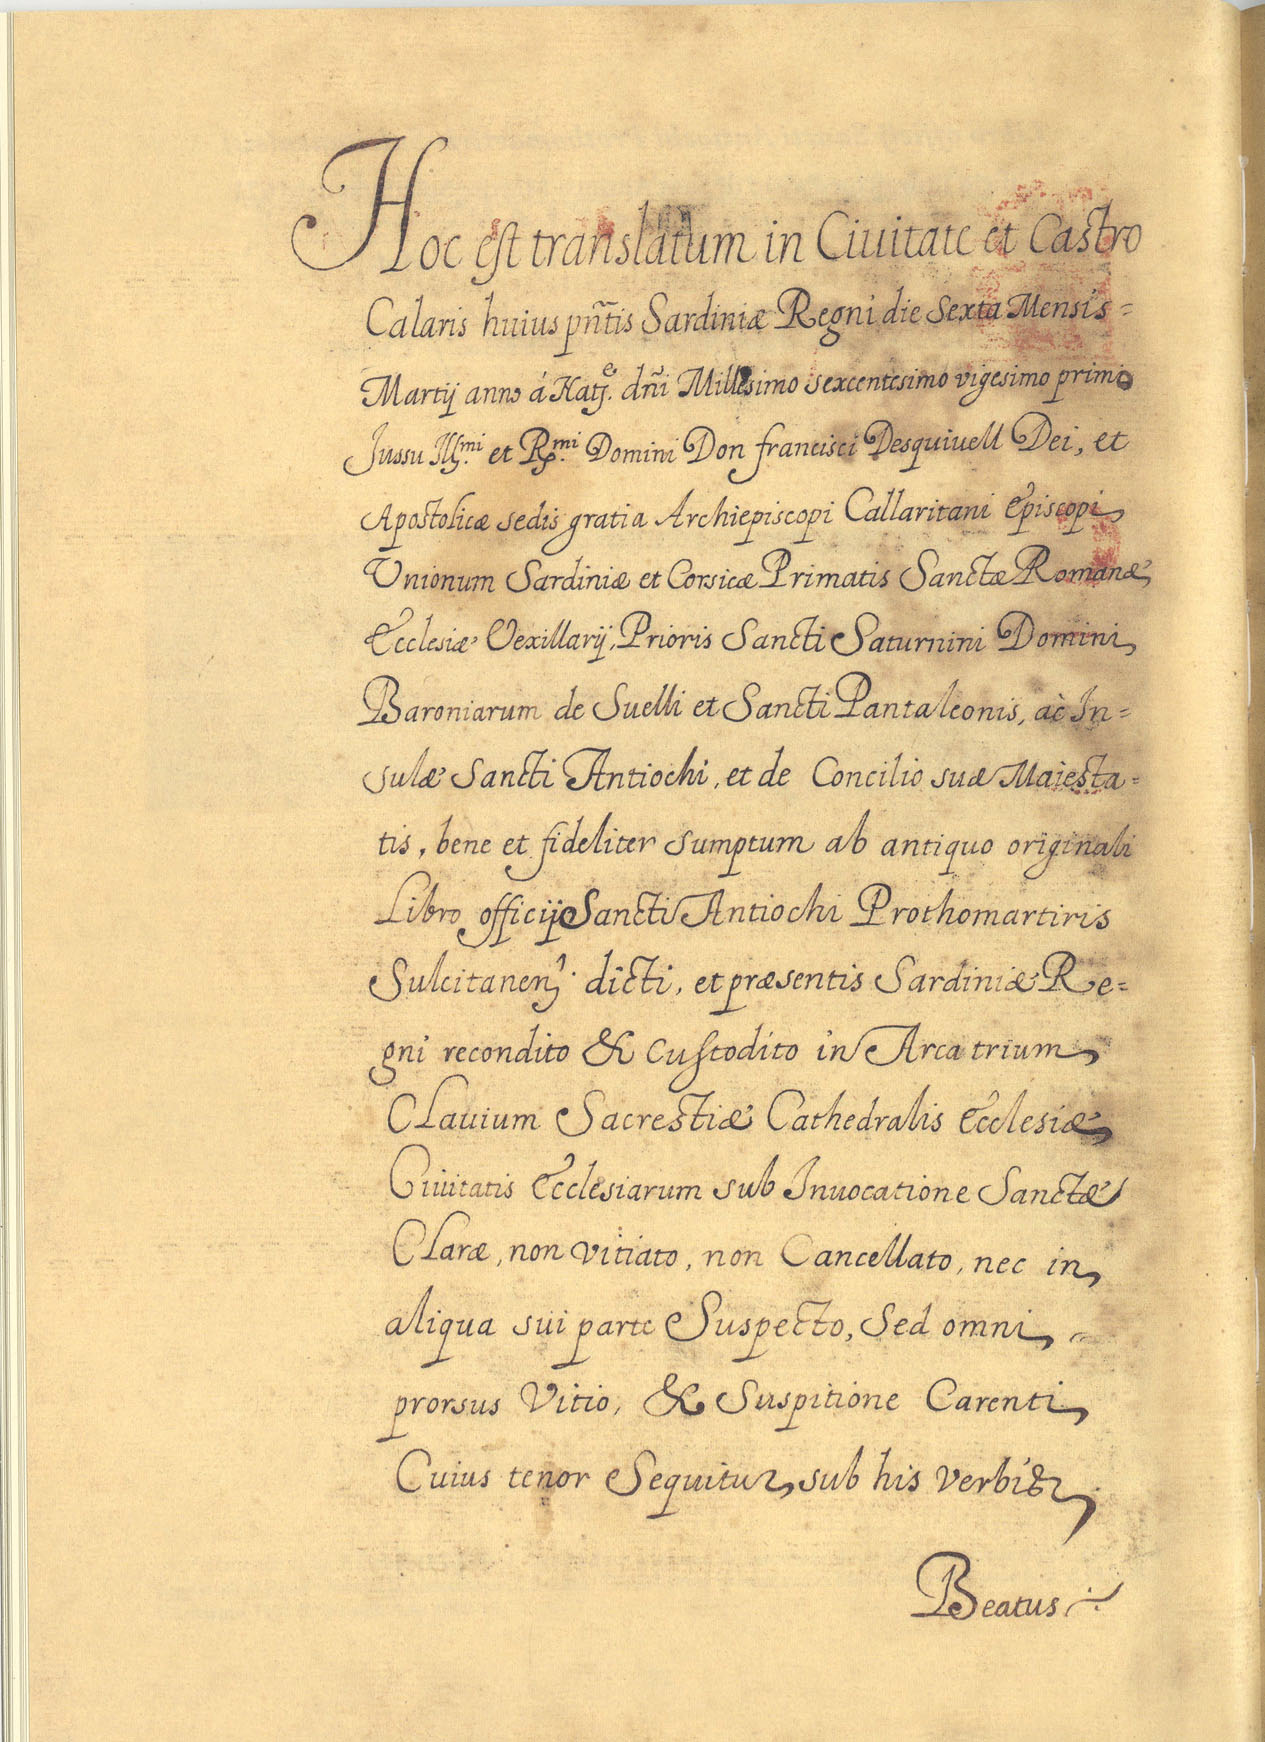 Hoc est translatum in Ciuitate et Castro
Calaris huius pñtis Sardiniæ Regni die sexta Mensis =
Martij anno á Natᵉ. dñi Millesimo sexcentesimo vigesimo primo
Jussu Illᵐⁱ et Rᵐⁱ Domini Don francisci Desquiuell Dei, et
Apostolicæ sedis gratia Archiepiscopi Callaritani Episcopi
Vnionum Sardiniæ et Corsicæ Primatis Sanctæ Romanæ
Ecclesiæ Vexillarij, Prioris Sancti Saturnini Domini
Baroniarum de Suelli et Sancti Pantaleonis, ac̀ In=
sulæ Sancti Antiochi, et de Concilio suæ Maiesta=
tis, bene et fideliter sumptum ab antiquo originali
Libro officij Sancti Antiochi Prothomartiris
Sulcitanen. dicti, et præsentis Sardiniæ Re=
gni recondito & custodito in Arca trium
Clauium Sacrestiæ Cathedralis Ecclesiæ
Ciuitatis Ecclesiarum sub Inuocatione Sanctæ
Claræ, non vitiato, non Cancellato, nec in
aliqua sui parte Suspecto, Sed omni
prorsus Vitio, & Suspitione Carenti
Cuius tenor Sequitur, sub his verbis
Beatus